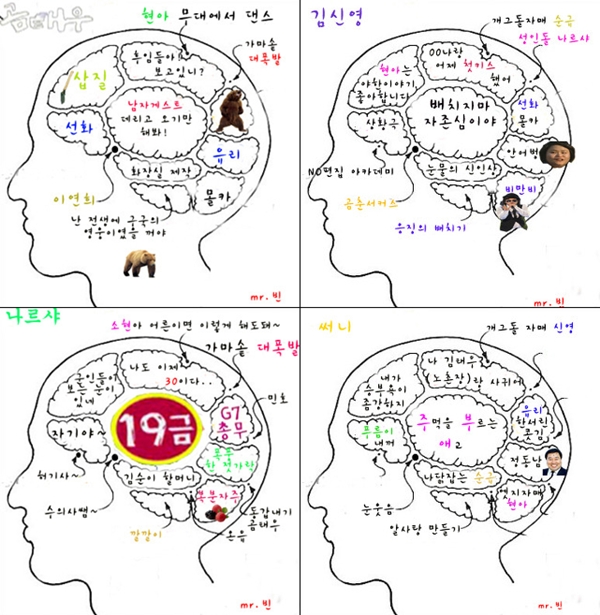 곰배우
현아 무대에서 댄스
후임들아!
보고있니?
가마솥
대폭발
삽질
선화
남자게스트
데리고 오기만
해봐!
유리
화장실 제작
몰카
이연희
난 전생에 구국의
영웅이였을 꺼야
mr.빈
김신영
개그돌자매 순규
성인돌 나르샤
OO나랑
어제 첫키스
했어
현아는
야한이야기
좋아합니다
상황극
배치지마
자존심이야
선화
몰카
안어벙
NO편집 아카데미
눈물의 신인상
비만비
곱춘서머즈
응징의 배치기
mr.빈
나르샤
소현아 어른이면 이렇게 해도돼~
가마솥 대폭발
나도 이제
30이다..
보는 눈이
있네
민호
G7
총무
19금
자기야~
폭풍
한 젓가락
허기사~
김순이 할머니
복분자주
수의사쌤~
깝깝이
동갑내기
곰태우
은유
mr.빈
써니
개그돌 자매 신영
나 김태우
(노촌장)랑 사귀어
내가
승부욕이
좀강하지
유리
한서린
콧김
푸름이
내꺼
주먹을 부르는
애교
정동남
나닭잡는 순규
엣지자매
현아
눈웃음
알사탕 만들기
mr.빈